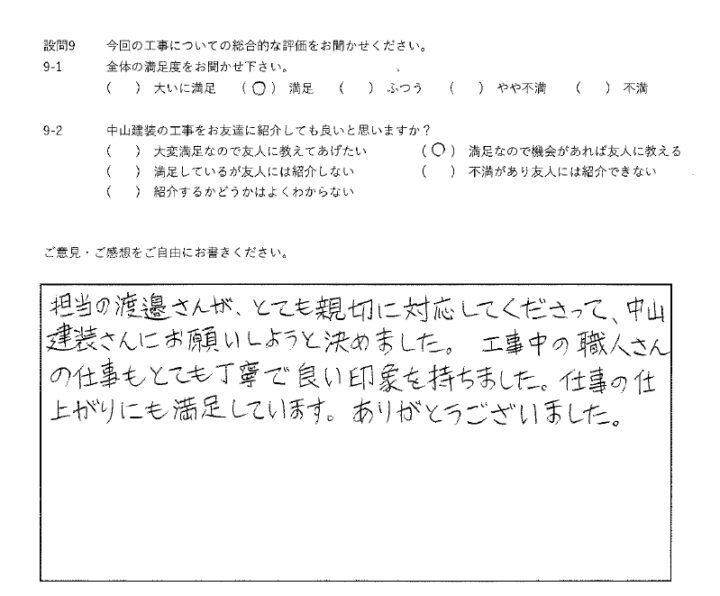 設問9 今回の工事についての総合的な評価をお聞かせください。
9-1 全体の満足度をお聞かせ下さい。
( ) 大いに満足 (○) 満足 ( ) ふつう ( ) やや不満 ( ) 不満
9-2 中山建装の工事をお友達に紹介しても良いと思いますか？
( ) 大変満足なので友人に教えてあげたい (○) 満足なので機会があれば友人に教える
( ) 満足しているが友人には紹介しない ( ) 不満があり友人には紹介できない
( ) 紹介するかどうかはよくわからない
ご意見・ご感想をご自由にお書きください。
担当の渡邉さんが、とても親切に対応してくださって、中山
建装さんにお願いしようと決めました。 工事中の職人さん
の仕事もとても丁寧で良い印象を持ちました。仕事の仕
上がりにも満足しています。ありがとうございました。